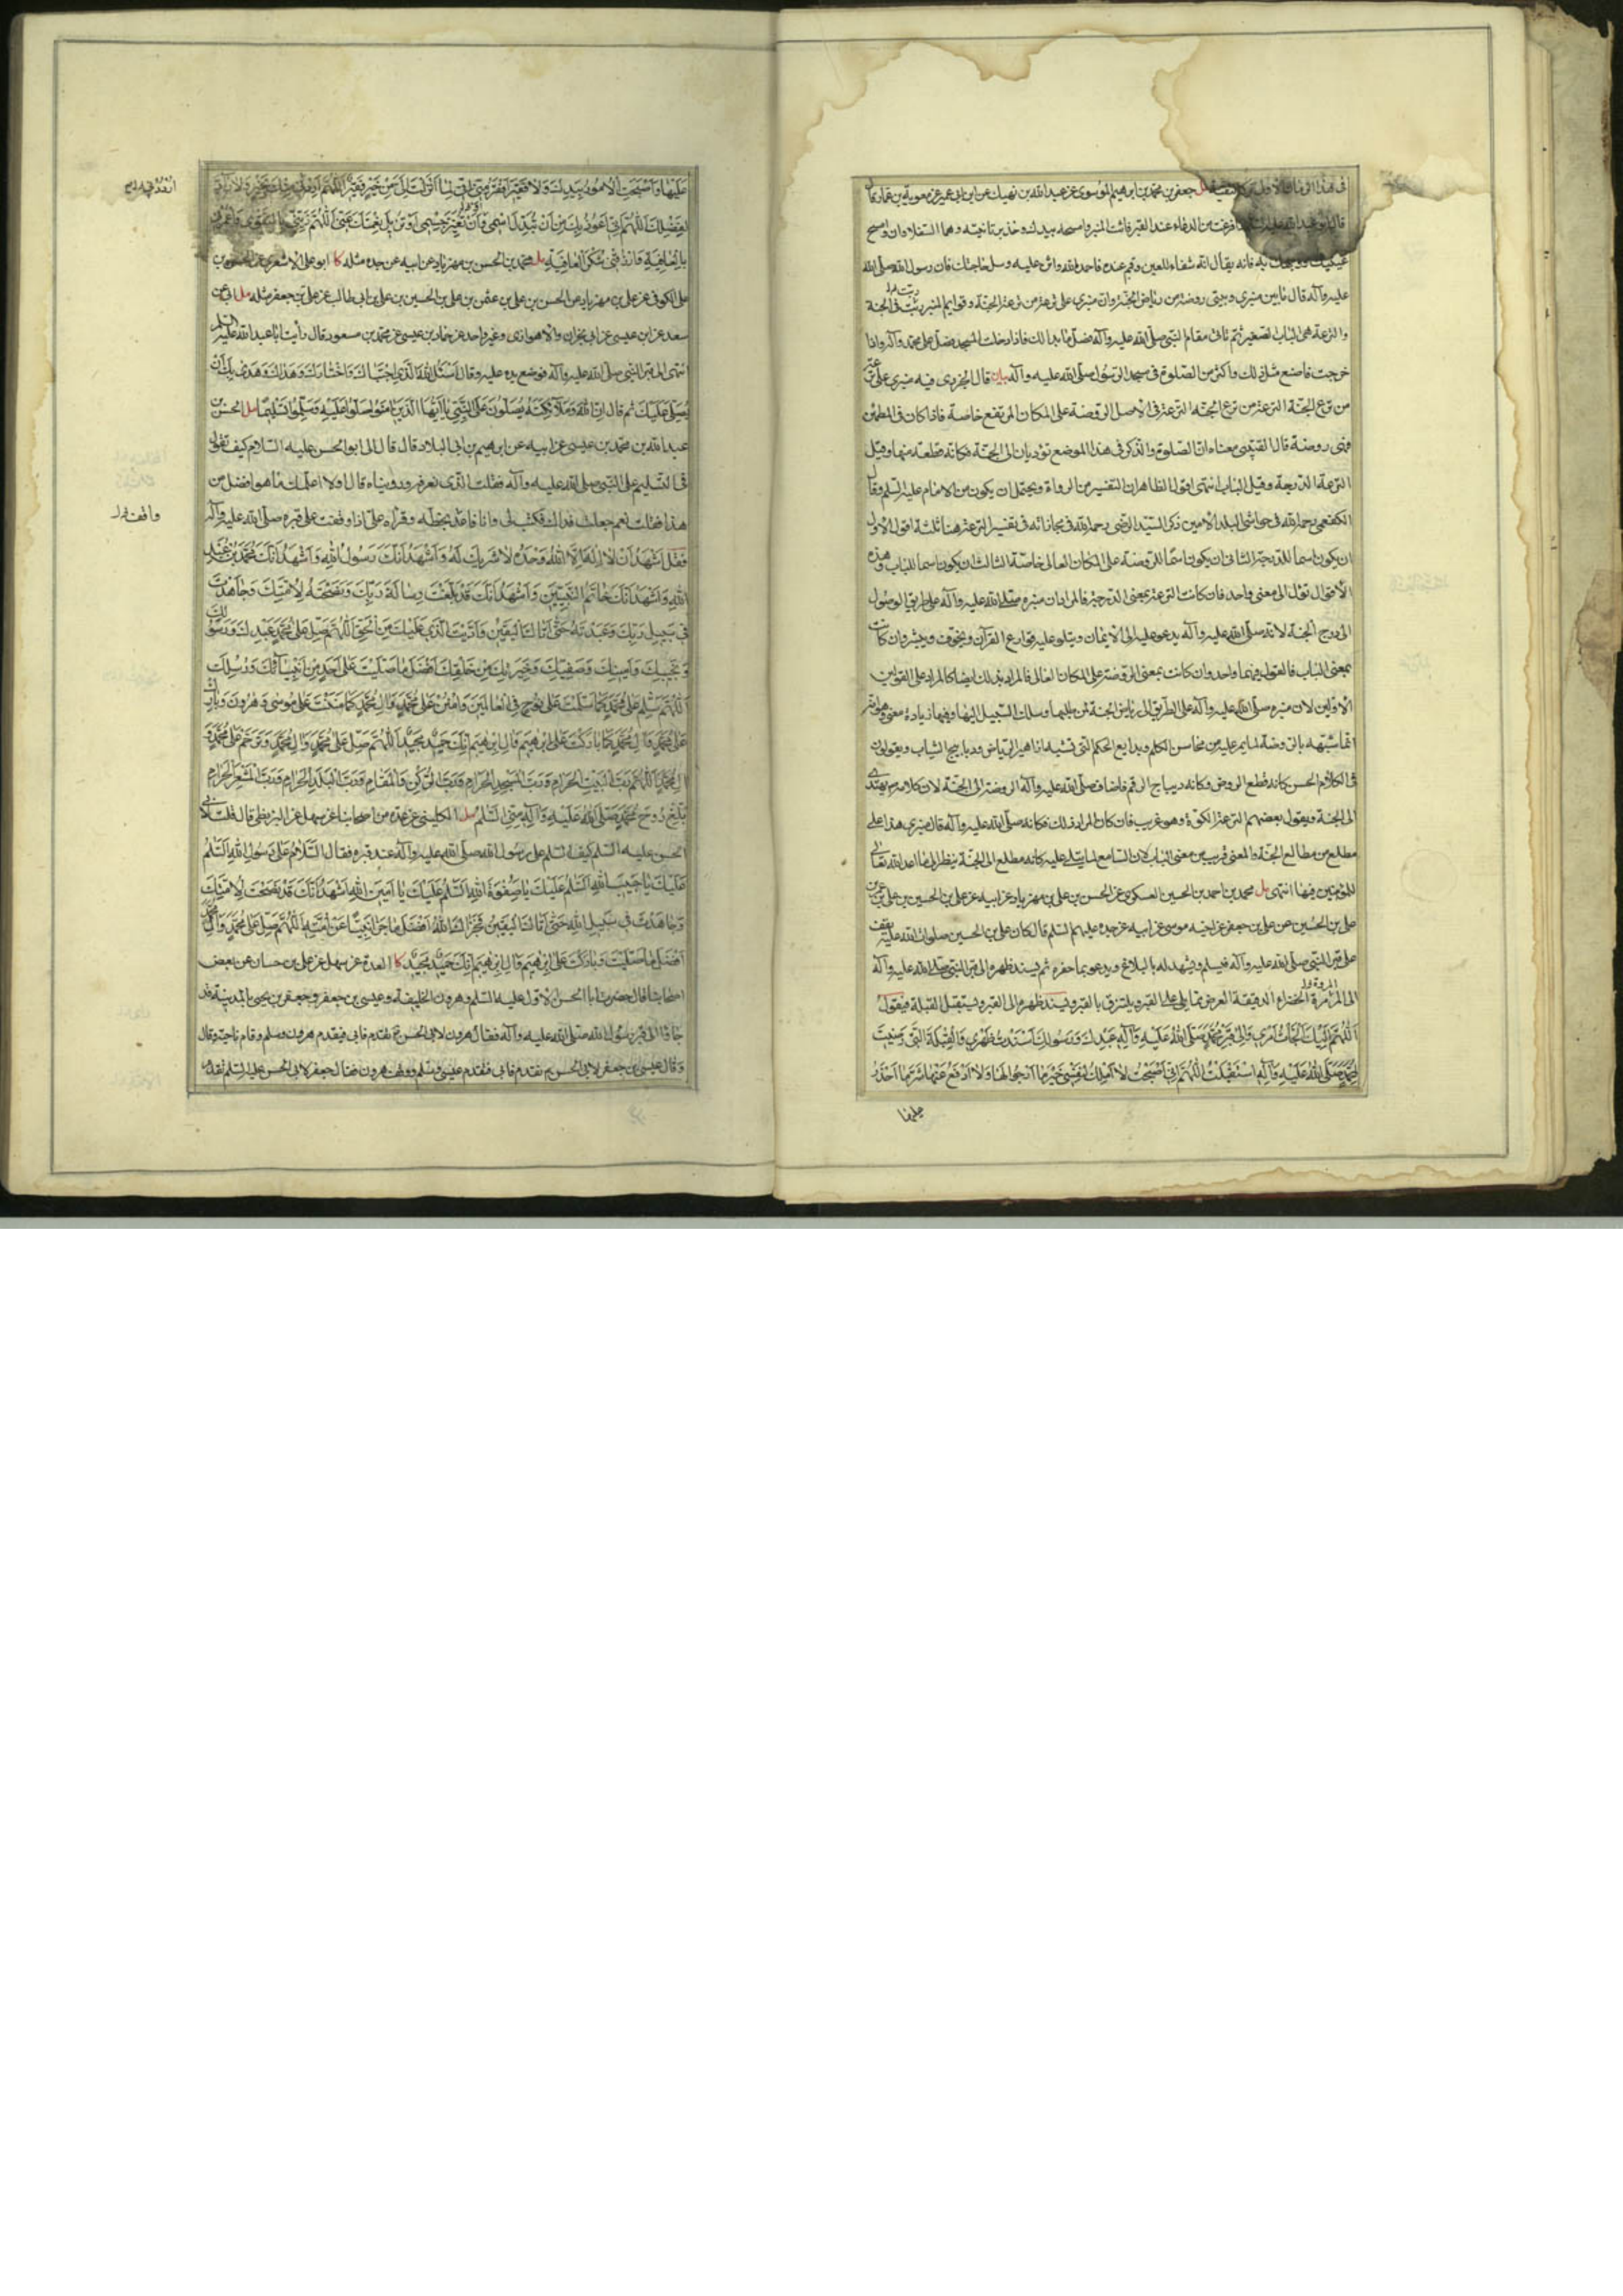 جعفر بن محمد بن ابرهيم الموسوى عن عبد الله بن نهيك عن ابن ابى عمير عن معوية بن عمار قال
فرغت من الدعاء عند القبر فائت المنبر وامسحه بيدك وخذ برمانتيه وهما السفلاوان وامسح
عينيك ووجهك به فانه يقال انه شفاء للعين وقم عنده فاحمد الله واثن عليه وسل حاجتك فان رسول الله صلى الله
عليه وآله قال ما بين منبرى وبيتى روضة من رياض الجنة وان منبرى على ترعة من ترع الجنة وقوايم المنبر رتبت فى الجنة
والترعة هى الباب الصغير ثم تاتى مقام النبى صلى الله عليه وآله فصل ما بدا لك فاذا دخلت المسجد فصل على محمد وآله واذا
خرجت فاصنع مثل ذلك واكثر من الصلوة فى مسجد الرسول صلى الله عليه وآله بيان قال الجزرى فيه منبرى على ترعة
من ترع الجنة الترعة فى الاصل الروضة على المكان المرتفع خاصة فاذا كان فى المطمئن
فهى روضة قال القتيبى معناه ان الصلوة والذكر فى هذا الموضع تؤديان الى الجنة فكانه قطعة منها وقيل
الترعة الدرجة وقيل الباب انتهى اقول الظاهر ان التفسير من الرواة ويحتمل ان يكون من الامام عليه السلم وقال
الكفعمى رحمه الله فى حواشى البلد الامين ذكر السيد الرضى رحمه الله فى مجازاته فى تفسير الترعة هنا ثلثة اقوال الاول
ان يكون اسما للدرجة الثانى ان يكون اسما للروضة على المكان العالى خاصة الثالث ان يكون اسما للباب وهذه
الاقوال تؤل الى معنى واحد فان كانت الترعة بمعنى الدرجة فالمراد ان منبره صلى الله عليه وآله على طريق الوصول
الى درج الجنة لانه صلى الله عليه وآله يدعو عليه الى الايمان ويتلو عليه قوارع القرآن ويخوف ويبشر وان كانت
بمعنى الباب فالقول فيهما واحد وان كانت بمعنى الروضة على المكان العالى فالمراد بذلك ايضا كالمراد على القولين
الاولين لان منبره صلى الله عليه وآله على الطريق الى رياض الجنة لمن طلبها وسلك السبيل اليها وفيها زيادة معنى وهو انه
انما شبهه بالروضة لما يمر عليه من محاسن الكلم وبدايع الحكم التى تشبه ازاهير الرياض وديابيج الثياب ويقولون
فى الكلام الحسن كانه قطع الروض وكانه ديباج الرقم فاضاف صلى الله عليه وآله الروضة الى الجنة لان كلامه يهدى
الى الجنة ويقول بعضهم الترعة الكوة وهو غريب فان كان المراد ذلك فكانه صلى الله عليه وآله قال منبرى هذا على
مطلع من مطالع الجنة والمعنى قريب من معنى الباب لان السامع لما يتلى عليه كانه مطلع الى الجنة ينظر الى ما اعد الله تعالى
للمؤمنين فيها انتهى مل محمد بن احمد بن الحسين العسكرى عن الحسن بن على بن مهزيار عن ابيه عن على بن الحسين بن على بن عمر بن
على بن الحسين عن على بن جعفر عن اخيه موسى عن ابيه عن جده عليهم السلم قال كان على بن الحسين صلوات الله عليه يقف
على قبر النبى صلى الله عليه وآله فيسلم ويشهد له بالبلاغ ويدعو بما حضره ثم يسند ظهره الى قبر النبى صلى الله عليه وآله
الى المرمرة الخضراء الدقيقة العرض مما يلى القبر ويلتزق بالقبر ويسند ظهره الى القبر ويستقبل القبلة فيقول
اللهم اليك الجات امرى والى قبر محمد صلى الله عليه وآله عبدك ورسولك اسندت ظهرى والقبلة التى رضيت
لمحمد صلى الله عليه وآله استقبلت اللهم انى اصبحت لا املك لنفسى خير ما ارجو لها ولا ادفع عنها شر ما احذر
عليها
عليها واصبحت الامور بيدك ولا فقير افقر منى انى لما انزلت الى من خير فقير اللهم
لفضلك اللهم انى اعوذ بك من ان تبدل اسمى وان تغير جسمى او تزيل نعمتك عنى اللهم زينى بالتقوى
بالعافية وارزقنى شكر العافية مل محمد بن الحسن بن مهزيار عن ابيه عن جده مثله كا ابو على الاشعرى عن الحسن بن
على الكوفى عن على بن مهزيار عن الحسن بن على بن عثمن بن على بن الحسين بن على بن ابى طالب عن على بن جعفر مثله مل ابى عن
سعد عن ابن عيسى عن ابن ابى نجران والاهوازى وغير واحد عن حماد بن عيسى عن محمد بن مسعود قال رأيت ابا عبد الله عليه السلم
انتهى الى قبر النبى صلى الله عليه وآله فوضع يده عليه وقال اسئل الله الذى اجتباك واختارك وهداك وهدى بك ان
يصلى عليك ثم قال ان الله وملائكته يصلون على النبى يا ايها الذين امنوا صلوا عليه وسلموا تسليما مل الحسن بن
عبد الله بن محمد بن عيسى عن ابيه عن ابرهيم بن ابى البلاد قال قال لى ابو الحسن عليه السلام كيف تقول
فى التسليم على النبى صلى الله عليه وآله فقلت الذى نعرفه ورويناه قال اولا اعلمك ما هو افضل من
هذا فقلت نعم جعلت فداك فكتب لى وانا قاعد بخطه وقرأه على اذا وقفت على قبره صلى الله عليه وآله
فقل اشهد ان لا اله الا الله وحده لا شريك له واشهد انك رسول الله واشهد انك محمد بن عبد
الله واشهد انك خاتم النبيين واشهد انك قد بلغت رسالة ربك ونصحت لامتك وجاهدت
فى سبيل ربك وعبدته حتى اتاك اليقين واديت الذى عليك من الحق اللهم صل على محمد عبدك ورسولك
ونجيك وامينك وصفيك وخيرتك من خلقك افضل ما صليت على احد من انبيائك ورسلك
اللهم سلم على محمد كما سلمت على نوح فى العالمين وامنن على محمد وال محمد كما مننت على موسى وهرون وبارك
على محمد وال محمد كما باركت على ابرهيم وال ابرهيم انك حميد مجيد اللهم صل على محمد وال محمد وترحم على محمد و
ال محمد اللهم رب البيت الحرام ورب المسجد الحرام ورب الركن والمقام ورب البلد الحرام ورب المشعر الحرام
بلغ روح محمد صلى الله عليه وآله منى السلم مل الكلينى عن عدة من اصحابنا عن سهل عن البزنطى قال قلت لابى
الحسن عليه السلم كيف السلم على رسول الله صلى الله عليه وآله عند قبره فقال السلام على رسول الله السلم
عليك يا حبيب الله السلم عليك يا صفوة الله السلم عليك يا امين الله اشهد انك قد نصحت لامتك
وجاهدت فى سبيل الله حتى اتاك اليقين فجزاك الله افضل ما جزى نبيا عن امته اللهم صل على محمد وال محمد
افضل ما صليت وباركت على ابرهيم وال ابرهيم انك حميد مجيد كا العدة عن سهل عن على بن حسان عن بعض
اصحابنا قال حضرت ابا الحسن الاول عليه السلم وهرون الخليفة وعيسى بن جعفر وجعفر بن يحيى بالمدينة قد
جاؤا الى قبر رسول الله صلى الله عليه وآله فقال هرون لابى الحسن ع تقدم فابى فتقدم هرون وسلم وقام ناحية وقال
وقال عيسى بن جعفر لابى الحسن ع تقدم فابى فتقدم عيسى وسلم ووقف مع هرون فقال جعفر لابى الحسن عليه السلم تقدم